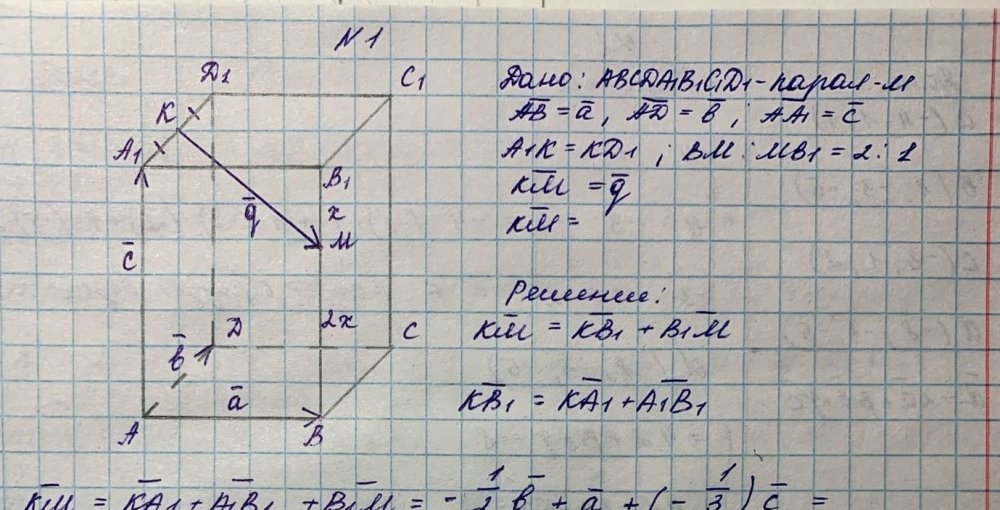 N1
Д1
C1
K
A1
B1
x
q̄
M
c̄
2x
Д
C
b̄
ā
A
B
Дано: ABCДA1B1C1Д1 - парал-м
A̅B̅ = ā, A̅Д̅ = b̄; A̅A̅1 = c̄
A1K = KД1; BM : MB1 = 2 : 1
K̅M̅ = q̄
K̅M̅ =
Решение:
K̅M̅ = K̅B̅1 + B̅1M̅
K̅B̅1 = K̅A̅1 + A̅1B̅1
K̅M̅ = K̅A̅1 + A̅1B̅1 + B̅1M̅ = - 1/2 b̄ + ā + (- 1/3) c̄ =